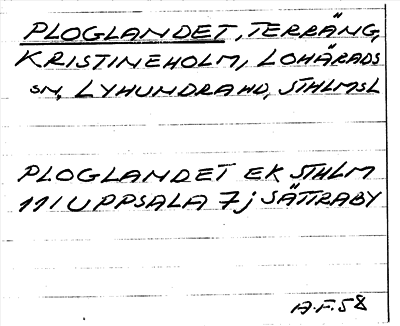 PLOGLANDET, TERRÄNG,
KRISTINEHOLM, LOHÄRADS
SN, LYHUNDRA HD, STHLMSL
PLOGLANDET EK STHLM
111 UPPSALA 7j SÄTTRABY
A.F.58